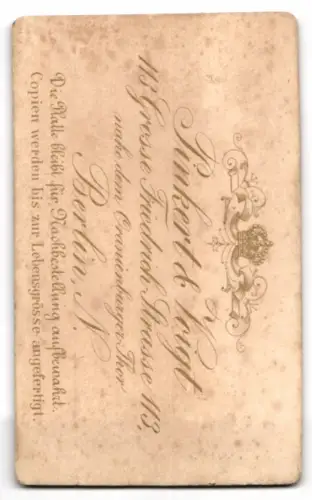 Pinkert & Voigt
113 Grosse Friedrich-Strasse 113,
nahe dem Oranienburger Thor
Berlin, N.
Die Platte bleibt für Nachbestellung aufbewahrt.
Copien werden bis zur Lebensgrösse angefertigt.